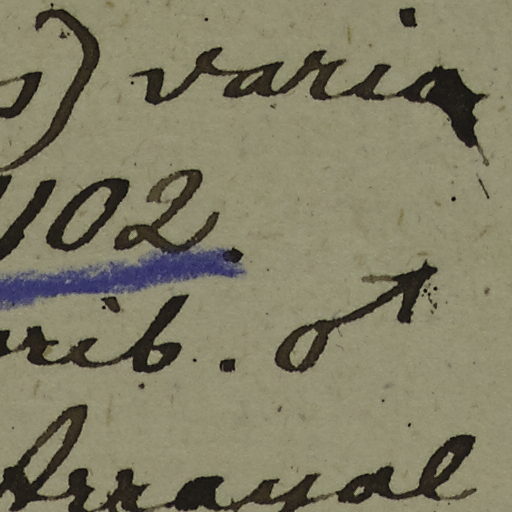 s) varia
1102.
rib. ♂
Arrayal